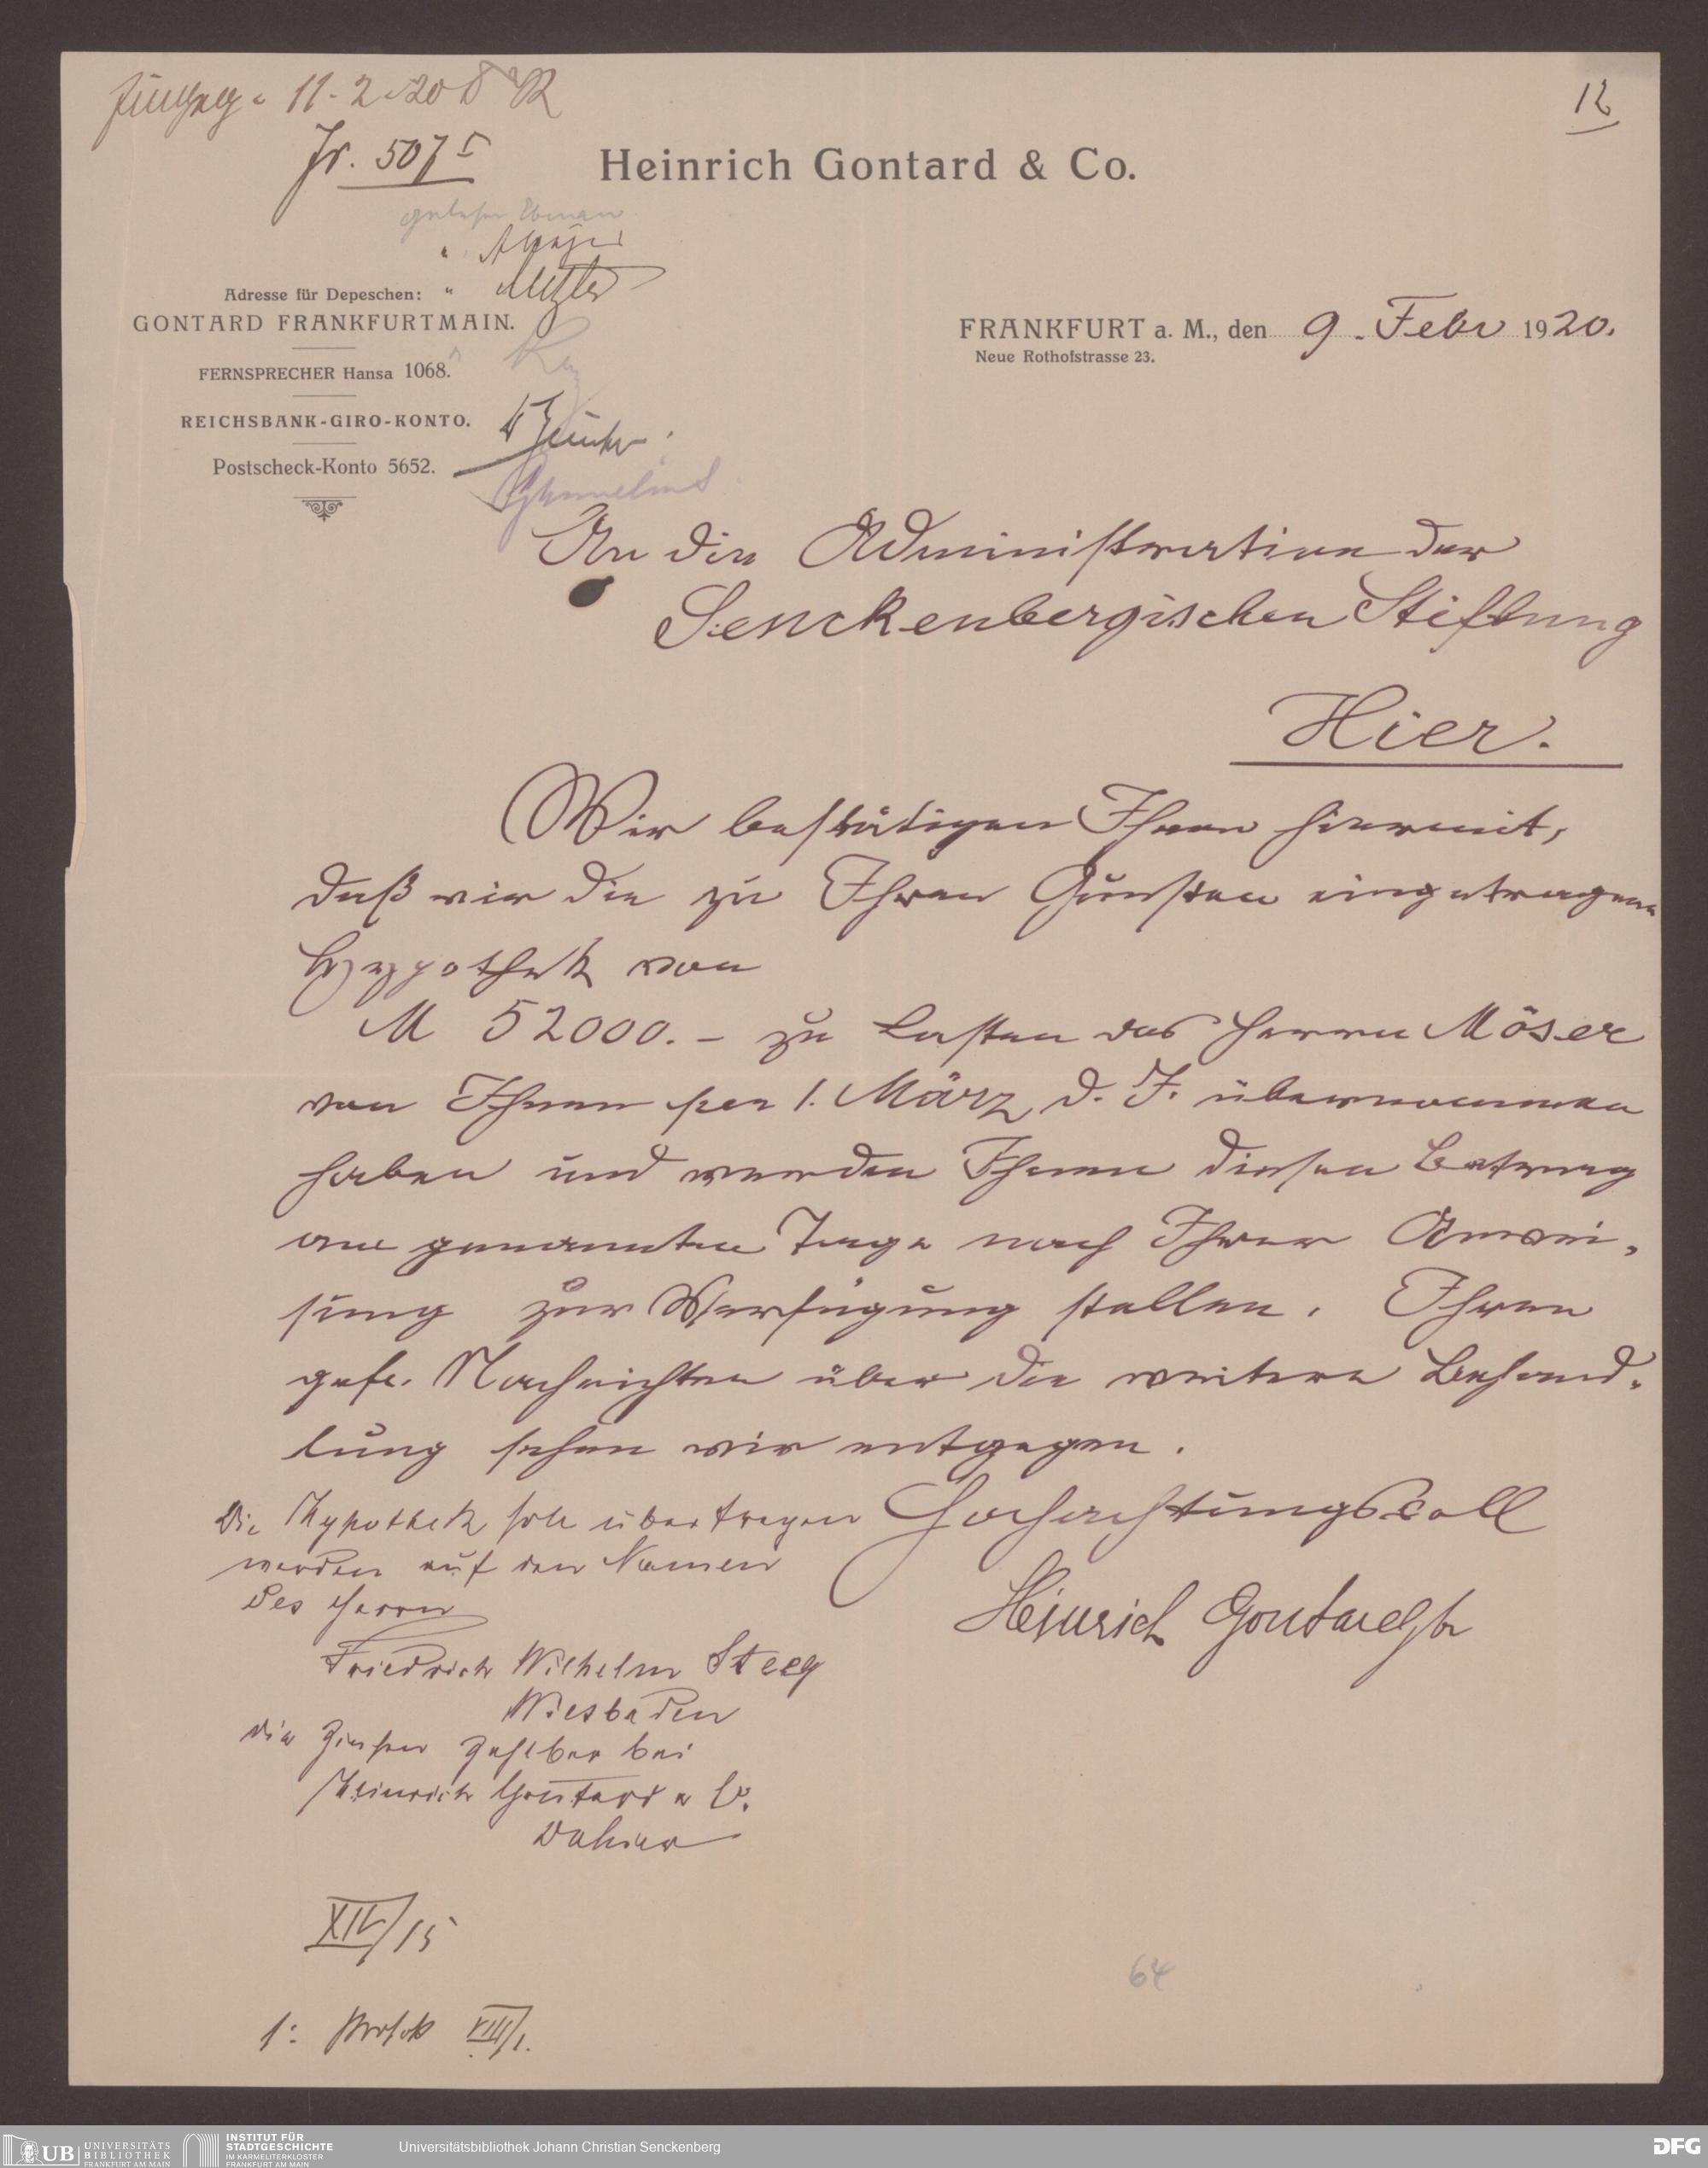 12
11.2.20
Jr. 507 I
Heinrich Gontard & Co.
gelesen
"
" Metzler
Adresse für Depeschen:
GONTARD FRANKFURTMAIN.
FERNSPRECHER Hansa 1068.
REICHSBANK-GIRO-KONTO.
Postscheck-Konto 5652.
FRANKFURT a. M., den 9. Febr 1920.
Neue Rothofstrasse 23.
An die Administration der
Senckenbergischen Stiftung
Hier.
Wir bestätigen Ihnen hiermit,
daß wir die zu Ihren Gunsten eingetragene
Hypothek von
M 52000.– zu Lasten des Herrn Möser
von Ihnen per 1. März d. J. übernommen
haben und werden Ihnen diesen Betrag
am genannten Tage nach Ihrer Anwei-
sung zur Verfügung stellen. Ihren
gefl. Nachrichten über die weitere Behand-
lung sehen wir entgegen.
Hochachtungsvoll
Heinrich Gontard & Co
Die Hypothek soll übertragen
werden auf den Namen
des Herrn
Friedrich Wilhelm Steeg
Wiesbaden
die Zinsen zahlbar bei
Heinrich Gontard & Co.
dahier
XIV/15
64
s: Protok VIII/1.
UB UNIVERSITÄTS
BIBLIOTHEK
FRANKFURT AM MAIN
INSTITUT FÜR
STADTGESCHICHTE
IM KARMELITERKLOSTER
FRANKFURT AM MAIN
Universitätsbibliothek Johann Christian Senckenberg
DFG